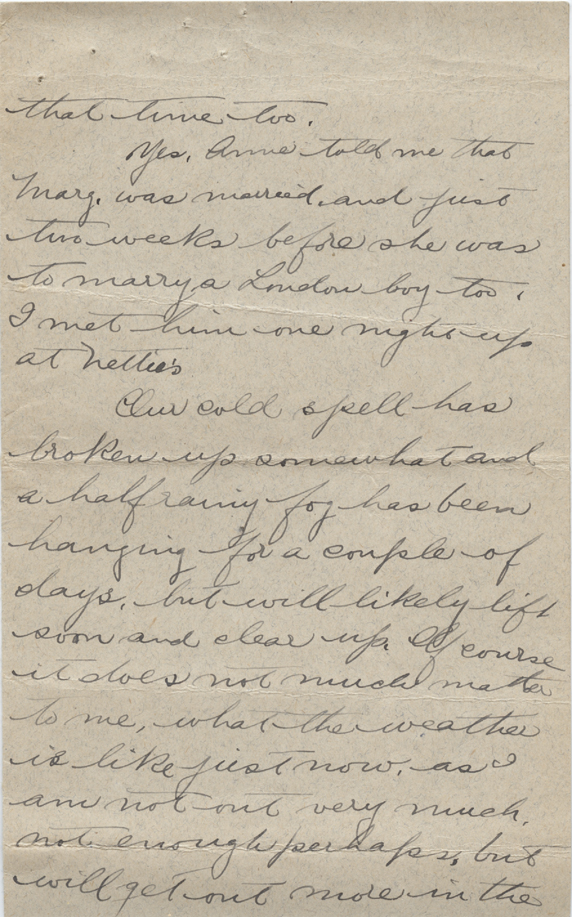 that time too.
Yes, Anne told me that
Marg. was married, and just
two weeks before she was
to marry a London boy too.
I met him one night up
at Nettie's
Our cold spell has
broken up somewhat and
a half rainy fog has been
hanging for a couple of
days, but will likely lift
soon and clear up. Of course
it does not much matter
to me, what the weather
is like just now, as I
am not out very much,
not enough perhaps, but
will get out more in the